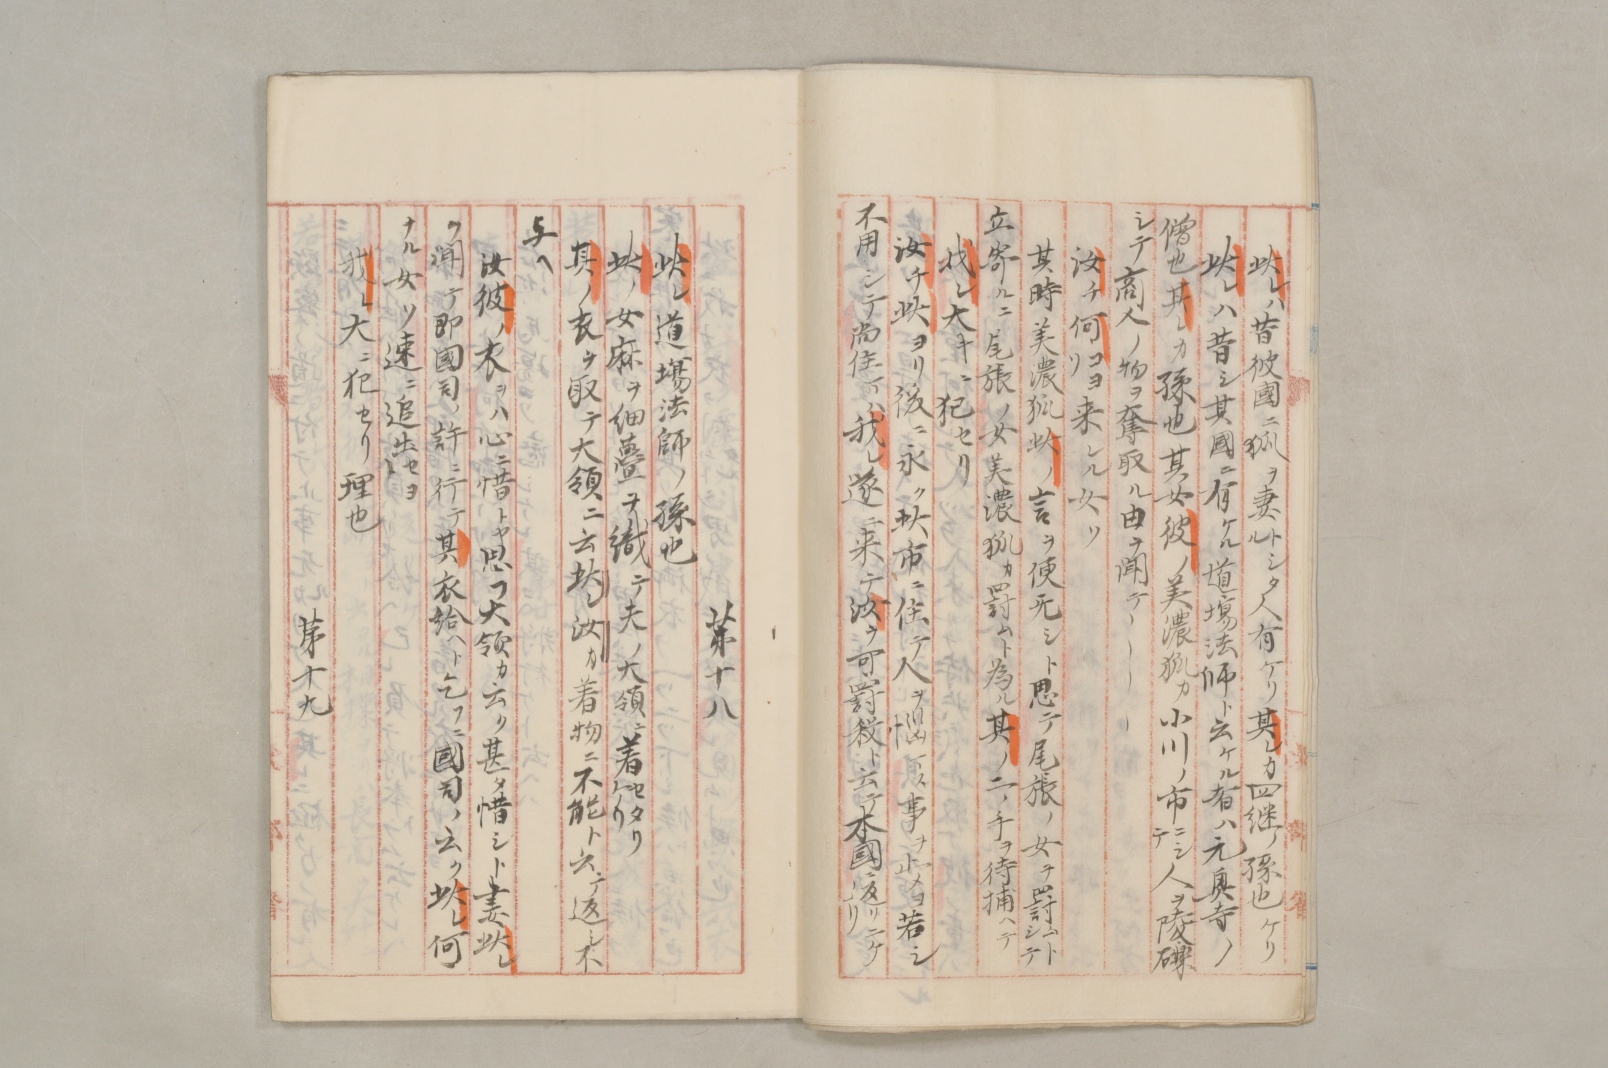 此レハ昔彼國ニ狐ヲ妻トシタル人有ケリ其レカ四継ノ孫也ケリ
此レハ昔シ其國ニ有ケル道場法師ト云ケル者ハ元興寺ノ
僧也其レカ孫也其女彼ノ美濃狐カ小川ノ市ニシテ人ヲ陵礫
シテ商人ノ物ヲ奪取ル由ヲ聞テ
汝チ何コヨリ来レル女ソ
其時美濃狐此ノ言ヲ便无シト思テ尾張ノ女ヲ罸ムトシテ
立寄ルニ尾張ノ女美濃狐カ罸ムト為ル其ノ二ノ手ヲ待捕ヘテ
我レ大キニ犯セリ
汝チ此ヨリ後ニ永ク此市ニ住テ人ヲ悩マス事ヲ止メヨ若シ
不用シテ尚住マハ我レ遂ニ来テ汝ヲ可罸殺ト云テ本國ニ返リニケリ
第十八
此レ道塲法師ノ孫也
此ノ女麻ヲ細疊ヲ織テ夫ノ大領ニ着セタリケリ
其ノ衣ヲ取テ大領ニ云此レ汝カ着物ニ不能ト云テ返シ不
与ヘ
汝彼ノ衣ヲハ心ニ惜トヤ思フ大領カ云ク甚タ惜シト妻此レ
ヲ聞テ即國司ノ許ニ行テ其衣給ヘト乞フニ國司ノ云ク此レ何
ナル女ソ速ニ追出セヨ
我レ大ニ犯セリ理也
第十九